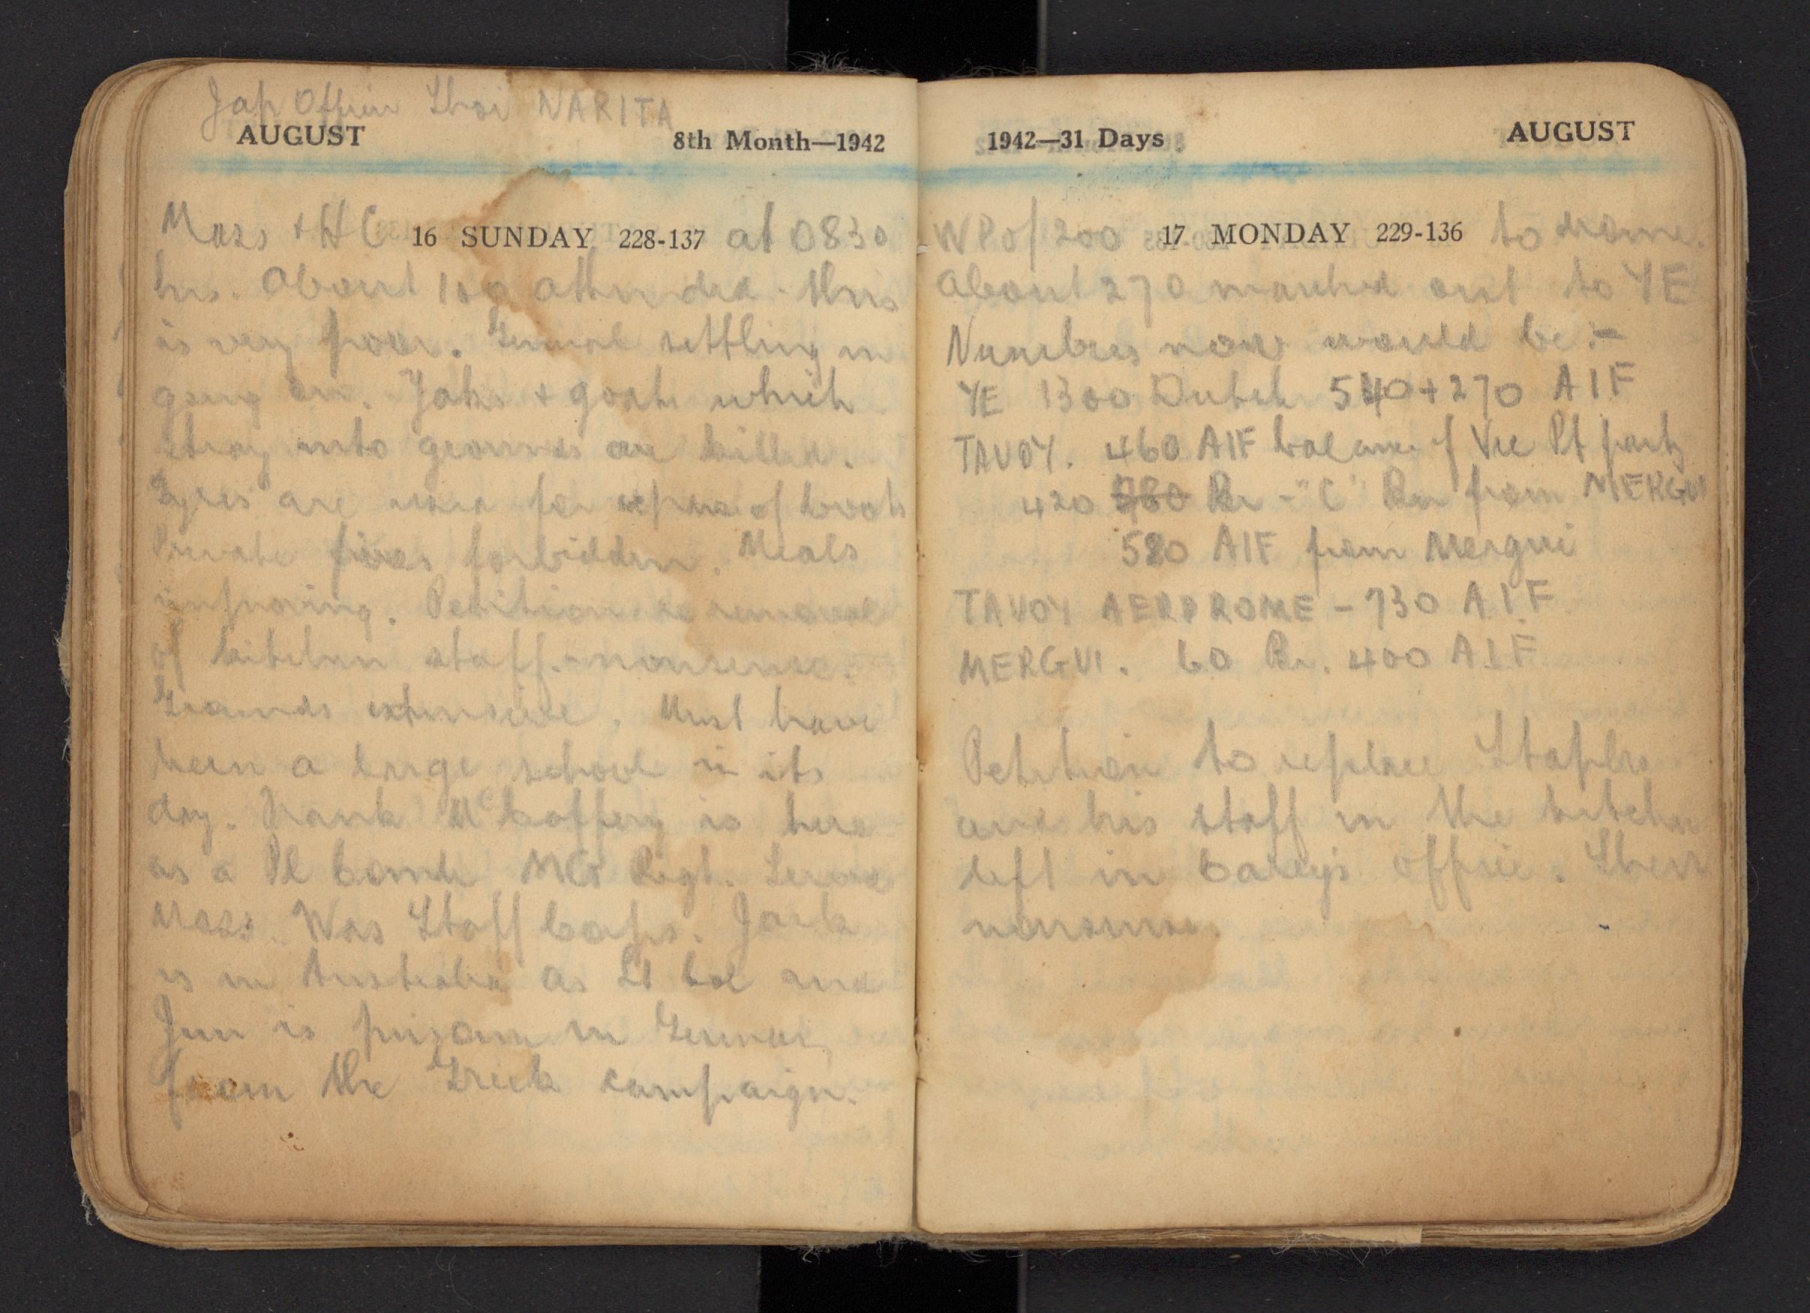 Jap Officer Shoi NARITA
AUGUST 8th Month—1942
Mass + H C 16 SUNDAY 228-137 at 0830
hrs. About 100 attended - this
is very poor. General settling in
going on. Yaks + goats which
stray into grounds are killed.
Tyres are used for repair of boots
Private fires forbidden. Meals
improving. Petition re removal
of kitchen staff. - nonsense.
Grounds extensive. Must have
been a large school in its
day. Frank McCaffery is here
as a Pl Comdr MG Regt. Served
Mass. Was Staff Capt. Jack
is in Australia as Lt Col and
Jim is prisoner in Germany
from the Greek campaign.
1942—31 Days AUGUST
W P of 200 17 MONDAY 229-136 to drome.
About 270 marched out to YE
Numbers now would be :-
YE 1300 Dutch 540 + 270 AIF
TAVOY. 460 AIF balance of Vic Pt party
420 980 Br - "C" Bn from MERGUI
580 AIF from Mergui
TAVOY AERDROME - 730 AIF
MERGUI. 60 Br. 400 AIF
Petition to replace Staples
and his staff in the kitchen
left in Carey's office. Sheer
nonsense.